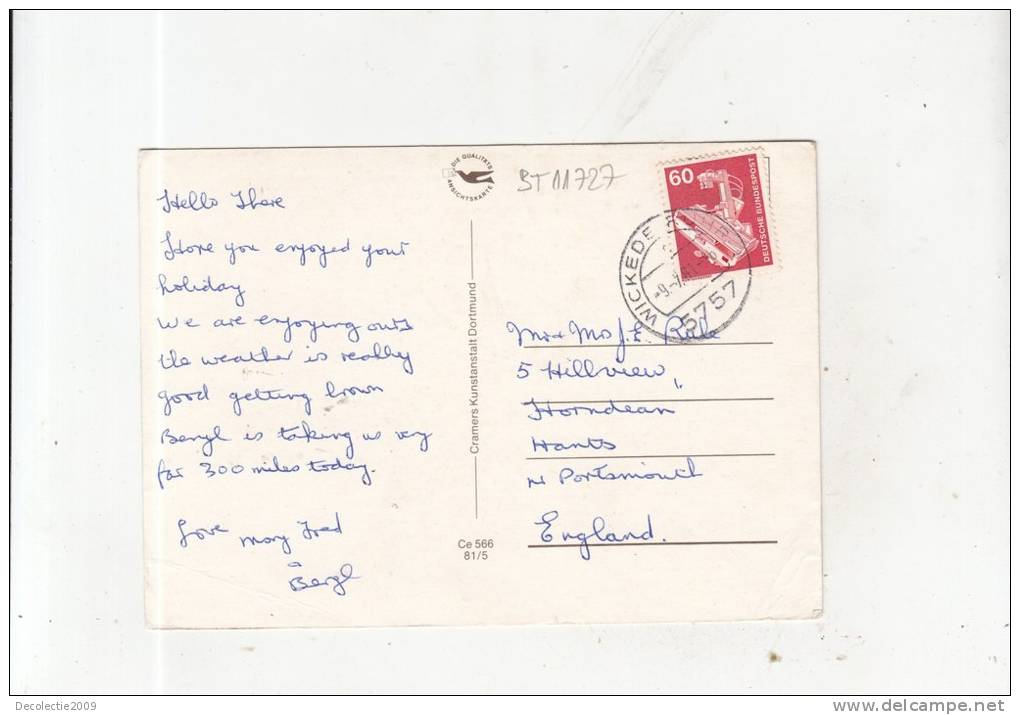 Hello There
Hope you enjoyed your
holiday
We are enjoying ours
the weather is really
good getting brown
Beryl is taking us very
far 300 miles today.
Love Mary Fred
Beryl
DIE QUALITÄTS
ANSICHTSKARTE
BT 11727
Cramers Kunstanstalt Dortmund
Ce 566
81/5
60
DEUTSCHE BUNDESPOST
WICKEDE
5757
Mr & Mrs J. L.
5 Hillview,
Horndean
Hants
Nr Portsmouth
England.
Decolectie2009
www.delcampe.net